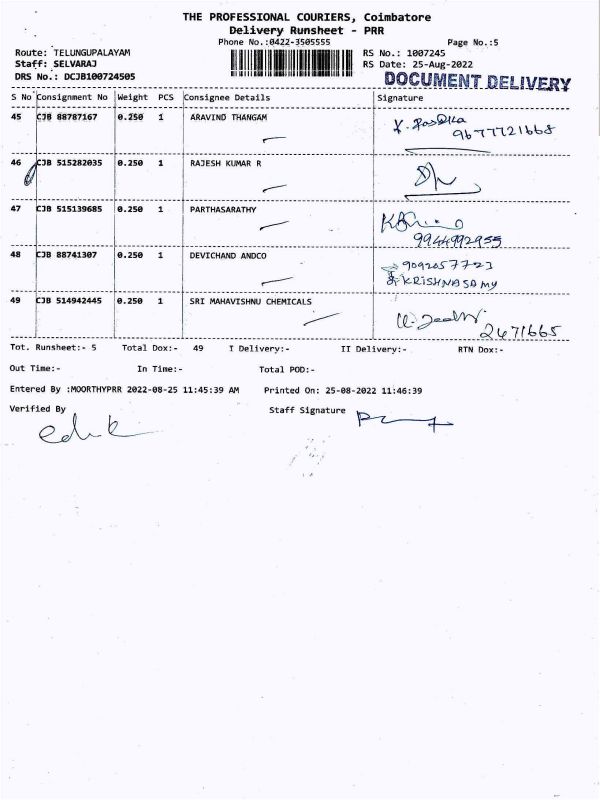 THE PROFESSIONAL COURIERS, Coimbatore
Delivery Runsheet - PRR
Phone No.:0422-3505555 Page No.:5
Route: TELUNGUPALAYAM RS No.: 1007245
Staff: SELVARAJ RS Date: 25-Aug-2022
DRS No.: DCJB100724505 DOCUMENT DELIVERY
S No Consignment No Weight PCS Consignee Details Signature
45 CJB 88787167 0.250 1 ARAVIND THANGAM
9677721668
46 CJB 515282035 0.250 1 RAJESH KUMAR R
47 CJB 515139685 0.250 1 PARTHASARATHY
9944992955
48 CJB 88741307 0.250 1 DEVICHAND ANDCO
9092057723
KRISHNASAMY
49 CJB 514942445 0.250 1 SRI MAHAVISHNU CHEMICALS
2471665
Tot. Runsheet:- 5 Total Dox:- 49 I Delivery:- II Delivery:- RTN Dox:-
Out Time:- In Time:- Total POD:-
Entered By :MOORTHYPRR 2022-08-25 11:45:39 AM Printed On: 25-08-2022 11:46:39
Verified By Staff Signature